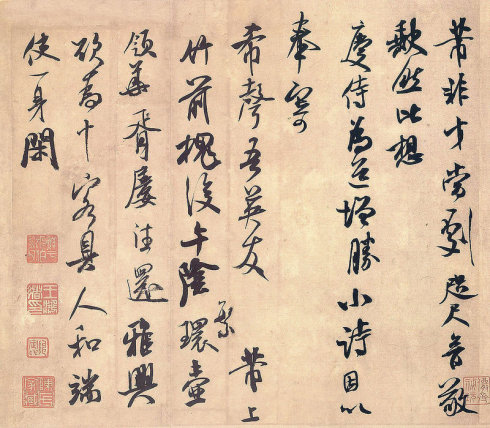 芾非才當劇咫尺音敬
缺然比想
慶侍為道增勝小詩因以
奉寄
希聲吾英友 繁 芾上
竹前槐後午陰環壺
領華胥屢往還雅興
欲為十客具人和端
使一身閑